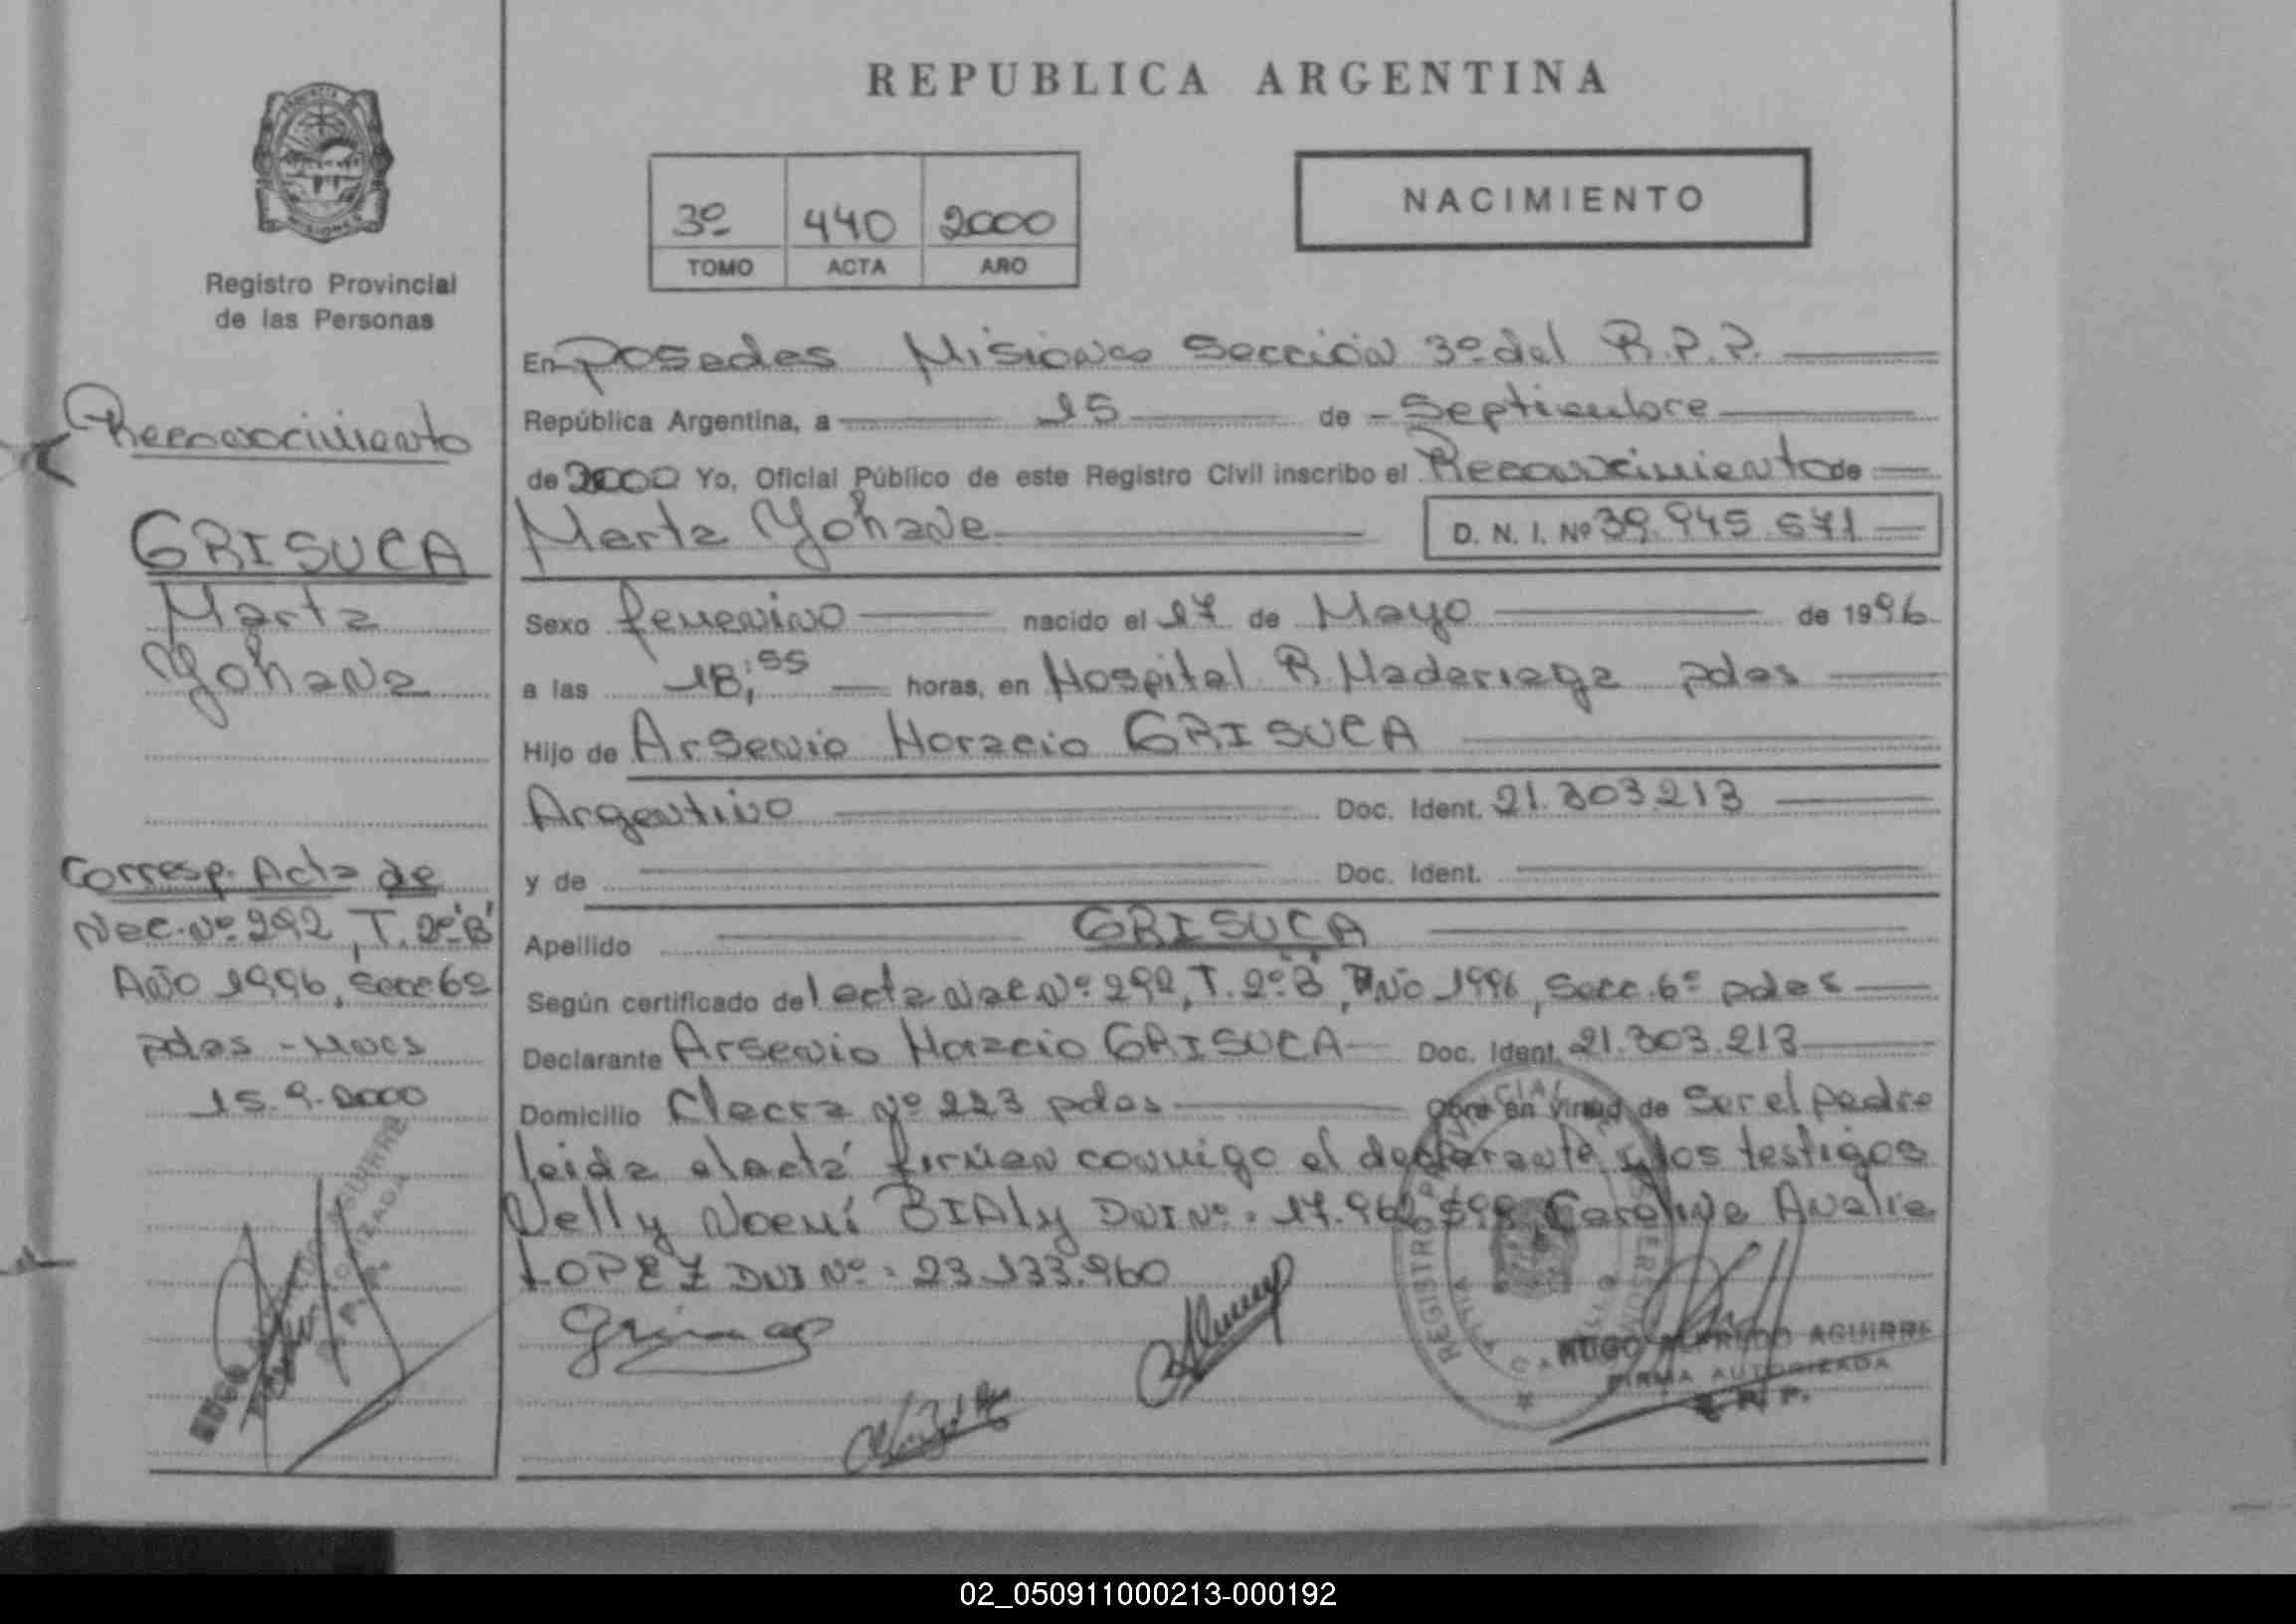 REPUBLICA ARGENTINA
NACIMIENTO
3º 440 2000
TOMO ACTA AÑO
Registro Provincial
de las Personas
Reconocimiento
GRISUCA
Marta
Yohana
Corresp. Acta de
Nac. Nº 292, T. 2º"B"
Año 1996, Secc 6º
pdas - Mnes
15.9.2000
En Posadas Misiones Sección 3º del R.P.P.
República Argentina, a 15 de Septiembre
de 2000 Yo, Oficial Público de este Registro Civil inscribo el Reconocimiento de
Marta Yohana D. N. I. Nº 39.945.671
Sexo femenino nacido el 17 de Mayo de 1996
a las 18,55 horas, en Hospital R. Madariaga pdas
Hijo de Arsenio Horacio GRISUCA
Argentino Doc. Ident. 21.303.213
y de Doc. Ident.
Apellido GRISUCA
Según certificado del acta Nac. Nº 292, T. 2º"B", Año 1996, Secc. 6º pdas
Declarante Arsenio Horacio GRISUCA Doc. Ident. 21.303.213
Domicilio Chacra Nº 223 pdas Obra en virtud de Ser el padre
leida el acta firman conmigo el declarante y los testigos
Nelly Noemí BIALY DNI Nº: 17.962. Carolina Analia
LOPEZ DNI Nº: 23.133.960
HUGO ALFREDO AGUIRRE
FIRMA AUTORIZADA
R. P. P.
02_050911000213-000192